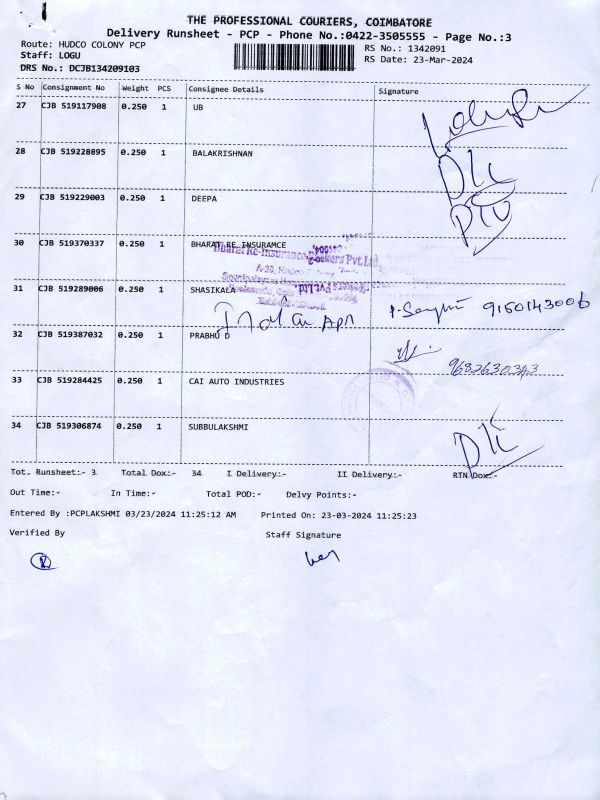 THE PROFESSIONAL COURIERS, COIMBATORE
Delivery Runsheet - PCP - Phone No.:0422-3505555 - Page No.:3
Route: HUDCO COLONY PCP
RS No.: 1342091
Staff: LOGU
RS Date: 23-Mar-2024
DRS No.: DCJB134209103
S No Consignment No Weight PCS Consignee Details Signature
27 CJB 519117908 0.250 1 UB
28 CJB 519228895 0.250 1 BALAKRISHNAN
29 CJB 519229003 0.250 1 DEEPA
30 CJB 519370337 0.250 1 BHARAT RE INSURAMCE
Bharat Re-Insurance Brokers Pvt.Ltd
31 CJB 519289006 0.250 1 SHASIKALA
9150143006
32 CJB 519387032 0.250 1 PRABHU D
9682630343
33 CJB 519284425 0.250 1 CAI AUTO INDUSTRIES
34 CJB 519306874 0.250 1 SUBBULAKSHMI
Tot. Runsheet:- 3 Total Dox:- 34 I Delivery:- II Delivery:- RTN Dox:-
Out Time:- In Time:- Total POD:- Delvy Points:-
Entered By :PCPLAKSHMI 03/23/2024 11:25:12 AM Printed On: 23-03-2024 11:25:23
Verified By Staff Signature